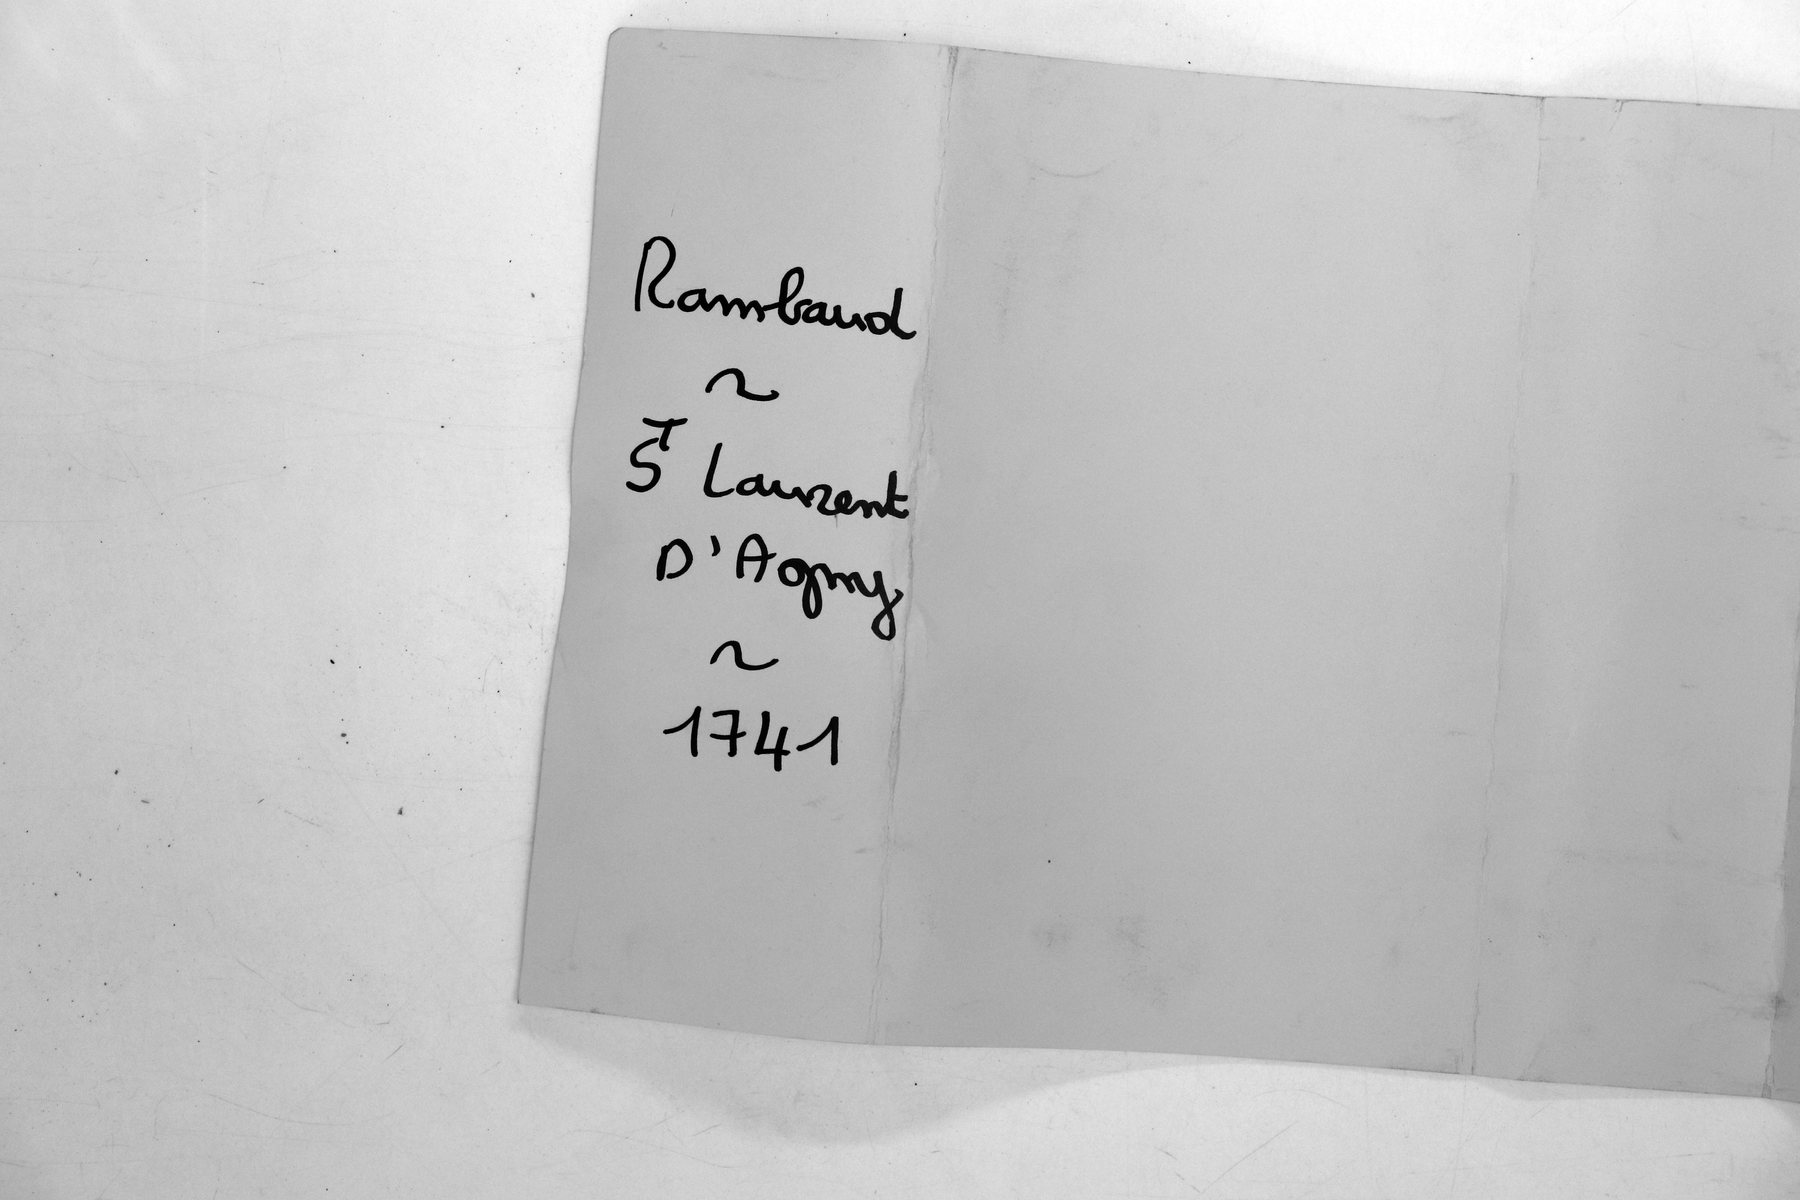 Rambaud
~
ST Laurent
D'Agny
~
1741